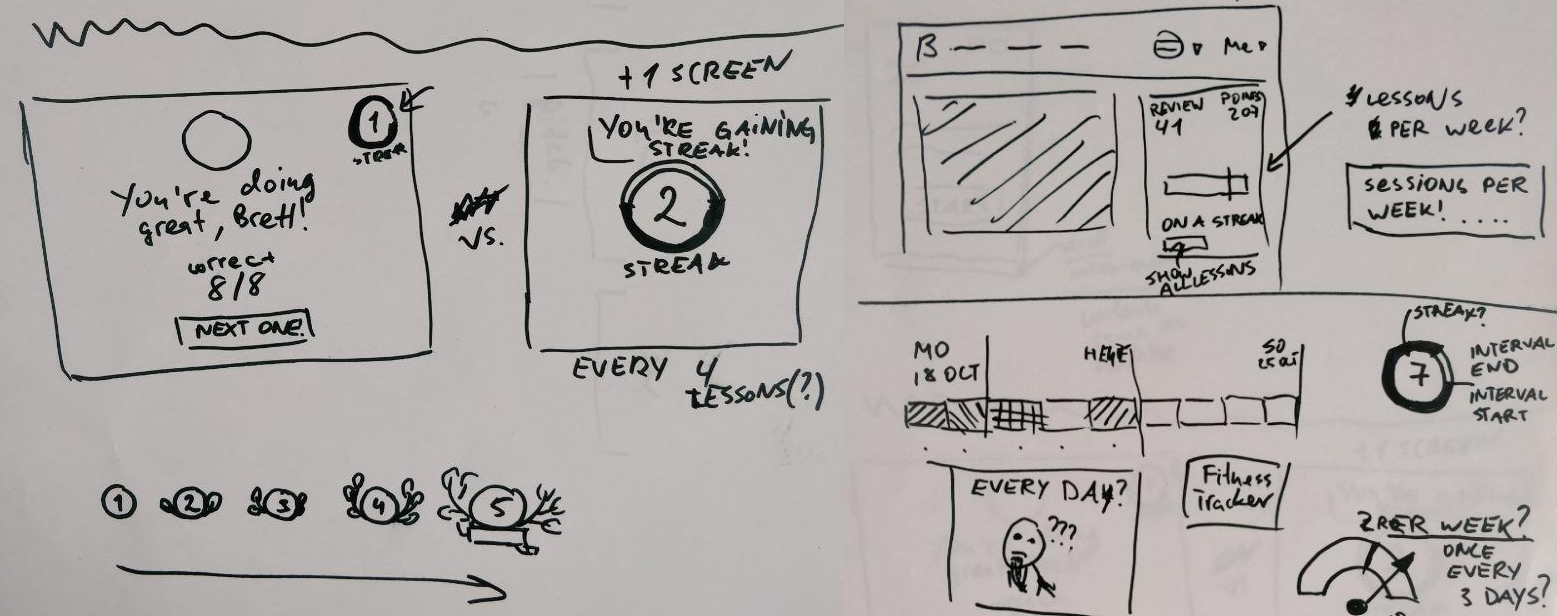 1
STREAK
You're doing
great, Brett!
correct
8/8
NEXT ONE!
VS.
+1 SCREEN
YOU'RE GAINING
STREAK!
2
STREAK
EVERY 4
LESSONS(?)
1 2 3 4 5
B
Me
REVIEW
41
POINTS
207
ON A STREAK
SHOW
ALL LESSONS
LESSONS
PER WEEK?
SESSIONS PER
WEEK! ....
MO
18 OCT
HEUTE
SO
25 OCT
STREAK?
7
INTERVAL
END
INTERVAL
START
EVERY DAY?
???
Fitness
Tracker
PER WEEK?
ONCE
EVERY
3 DAYS?